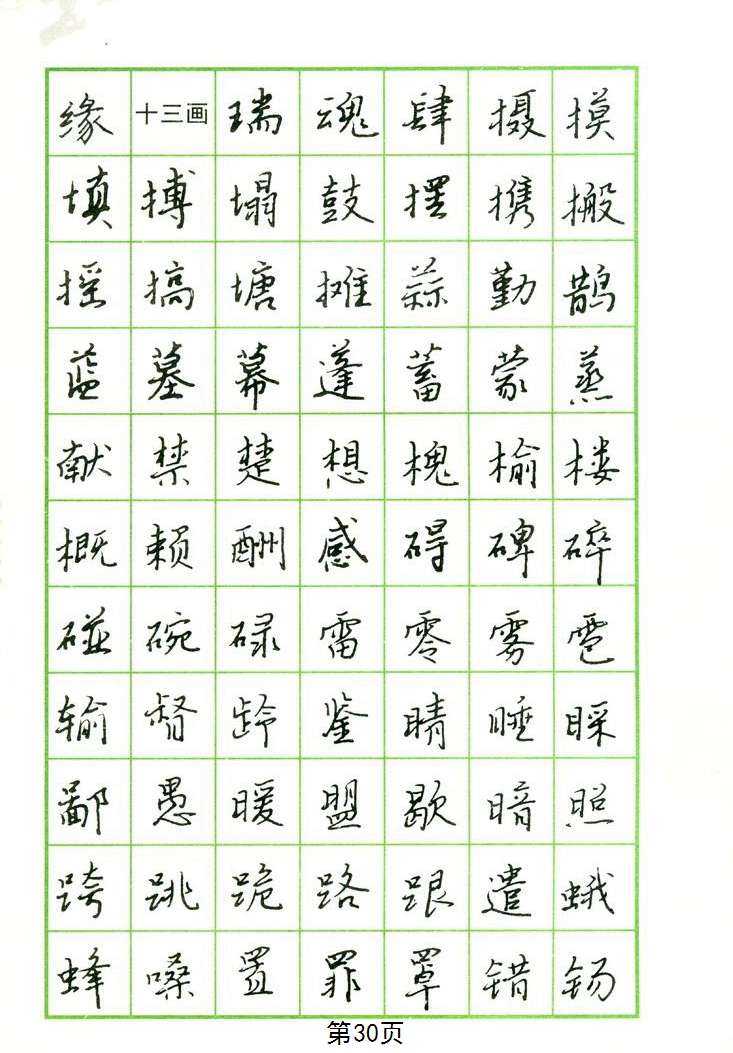 缘 十三画 瑞 魂 肆 摄 摸
填 搏 塌 鼓 摆 携 搬
摇 搞 塘 摊 蒜 勤 鹊
蓝 墓 幕 蓬 蓄 蒙 蒸
献 禁 楚 想 槐 榆 楼
概 赖 酬 感 碍 碑 碎
碰 碗 碌 雷 零 雾 雹
输 督 龄 鉴 睛 睡 睬
鄙 愚 暖 盟 歇 暗 照
跨 跳 跪 路 跟 遣 蛾
蜂 嗓 置 罪 罩 错 锡
第30页